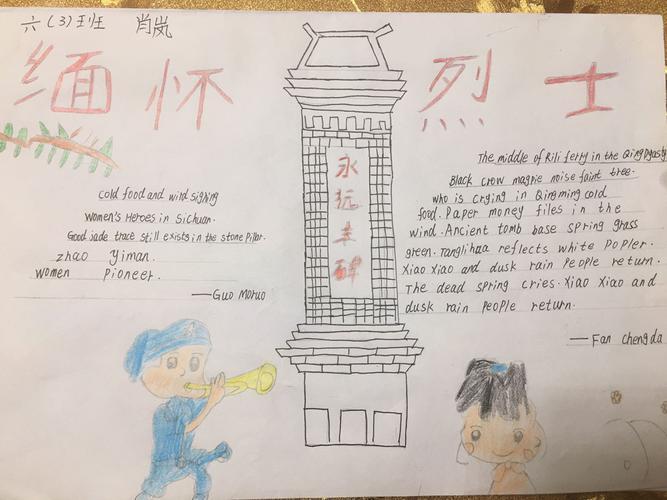 六(3)班 肖岚
缅怀 烈士
永远丰碑
cold food and wind sighing
Women's Heroes in Sichuan.
Good jade trace still exists in the stone Pillar.
zhao Yiman.
women Pioneer.
—Guo Moruo
The middle of Rili ferry in the Qing Dyasty
Black crow magpie noise faint tree.
who is crying in Qingming cold
food. Paper money files in the
wind. Ancient tomb base spring grass
green. Tanglihua reflects white Popler.
Xiao Xiao and dusk rain People return.
The dead spring cries. Xiao Xiao and
dusk rain People return.
—Fan chengda